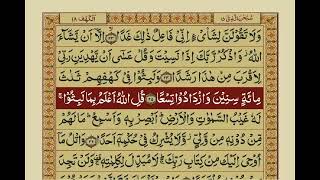 سُبْحٰنَ الَّذِیْۤ ١٥ الْكَهْف ١٨
وَلَا تَقُوْلَنَّ لِشَایْءٍ اِنِّیْ فَاعِلٌ ذٰلِكَ غَدًا ﴿۲۳﴾ اِلَّاۤ اَنْ یَّشَآءَ
اللّٰهُ ؗ وَاذْكُرْ رَّبَّكَ اِذَا نَسِیْتَ وَقُلْ عَسٰۤی اَنْ یَّهْدِیَنِ رَبِّیْ
لِاَقْرَبَ مِنْ هٰذَا رَشَدًا ﴿۲۴﴾ وَلَبِثُوْا فِیْ كَهْفِهِمْ ثَلٰثَ
مِائَةٍ سِنِیْنَ وَازْدَادُوْا تِسْعًا ﴿۲۵﴾ قُلِ اللّٰهُ اَعْلَمُ بِمَا لَبِثُوْا ۚ
لَهٗ غَیْبُ السَّمٰوٰتِ وَالْاَرْضِ ؕ اَبْصِرْ بِهٖ وَاَسْمِعْ ؕ مَا لَهُمْ
مِّنْ دُوْنِهٖ مِنْ وَّلِیٍّ ؗ وَّلَا یُشْرِكُ فِیْ حُكْمِهٖۤ اَحَدًا ﴿۲۶﴾ وَاتْلُ مَاۤ
اُوْحِیَ اِلَیْكَ مِنْ كِتَابِ رَبِّكَ ؕ لَا مُبَدِّلَ لِكَلِمٰتِهٖ ۚ وَلَنْ تَجِدَ